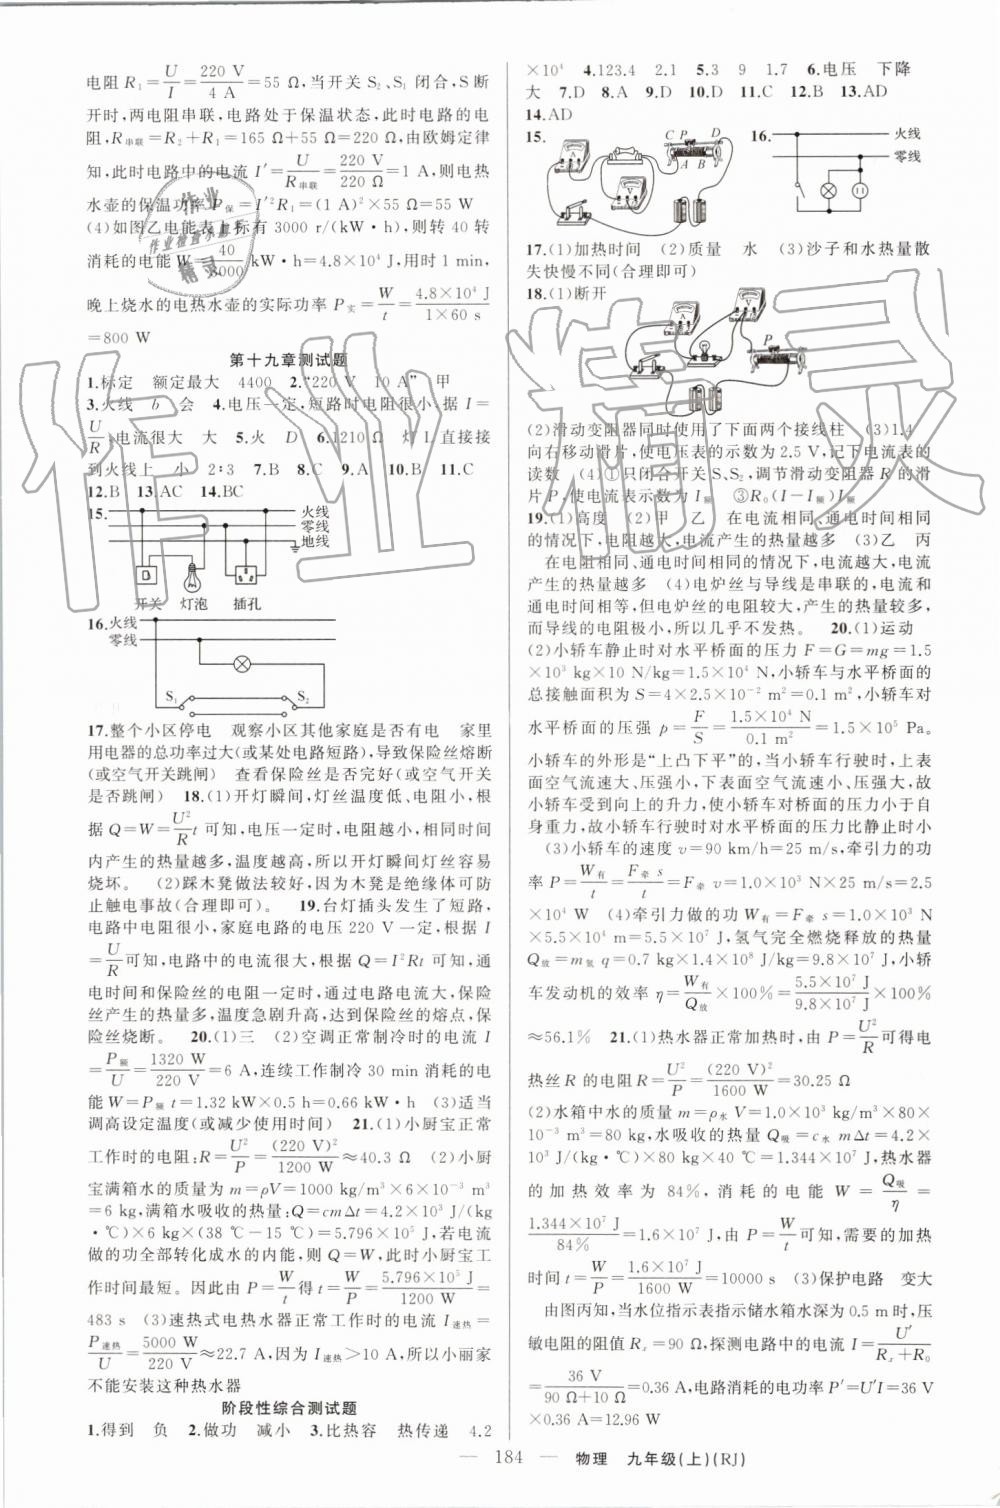 电阻 R₁ = U/I = 220 V/4 A = 55 Ω,当开关 S₂、S₁ 闭合,S 断
开时,两电阻串联,电路处于保温状态,此时电路的电
阻,R串联=R₂+R₁=165 Ω+55 Ω=220 Ω,由欧姆定律
知,此时电路中的电流 I′= U/R串联 = 220 V/220 Ω = 1 A,则电热
水壶的保温功率 P保=I′²R₁=(1 A)²×55 Ω=55 W
(4)如图乙电能表上标有 3000 r/(kW·h),则转 40 转
消耗的电能 W= 40/3000 kW·h=4.8×10⁴ J,用时 1 min,
晚上烧水的电热水壶的实际功率 P实= W/t = 4.8×10⁴ J/1×60 s
=800 W
第十九章测试题
1.标定 额定最大 4400 2.“220 V 10 A” 甲
3.火线 b 会 4.电压一定,短路时电阻很小,据 I=
U/R,电流很大 大 5.火 D 6.1210 Ω 灯 L 直接接
到火线上 小 2∶3 7.B 8.C 9.A 10.B 11.C
12.B 13.AC 14.BC
15. 火线
零线
地线
开关 灯泡 插孔
16. 火线
零线
S₁ S₂
17.整个小区停电 观察小区其他家庭是否有电 家里
用电器的总功率过大(或某处电路短路),导致保险丝熔断
(或空气开关跳闸) 查看保险丝是否完好(或空气开关
是否跳闸) 18.(1)开灯瞬间,灯丝温度低、电阻小,根
据 Q=W= U²/R t 可知,电压一定时,电阻越小,相同时间
内产生的热量越多,温度越高,所以开灯瞬间灯丝容易
烧坏。 (2)踩木凳做法较好,因为木凳是绝缘体可防
止触电事故(合理即可)。 19.台灯插头发生了短路,
电路中电阻很小,家庭电路的电压 220 V 一定,根据 I
= U/R 可知,电路中的电流很大,根据 Q=I²Rt 可知,通
电时间和保险丝的电阻一定时,通过电路电流大,保险
丝产生的热量多,温度急剧升高,达到保险丝的熔点,保
险丝烧断。 20.(1)三 (2)空调正常制冷时的电流 I
= P额/U = 1320 W/220 V = 6 A,连续工作制冷 30 min 消耗的电
能 W=P额 t=1.32 kW×0.5 h=0.66 kW·h (3)适当
调高设定温度(或减少使用时间) 21.(1)小厨宝正常
工作时的电阻:R= U²/P = (220 V)²/1200 W ≈40.3 Ω (2)小厨
宝满箱水的质量为 m=ρV=1000 kg/m³×6×10⁻³ m³
=6 kg,满箱水吸收的热量:Q=cmΔt=4.2×10³ J/(kg
·℃)×6 kg×(38 ℃-15 ℃)=5.796×10⁵ J,若电流
做的功全部转化成水的内能,则 Q=W,此时小厨宝工
作时间最短。因此由 P= W/t 得 t= W/P = 5.796×10⁵ J/1200 W =
483 s (3)速热式电热水器正常工作时的电流 I速热=
P速热/U = 5000 W/220 V ≈22.7 A,因为 I速热>10 A,所以小丽家
不能安装这种热水器
阶段性综合测试题
1.得到 负 2.做功 减小 3.比热容 热传递 4.2
×10⁴ 4.123.4 2.1 5.3 9 1.7 6.电压 下降
大 7.D 8.A 9.D 10.D 11.C 12.B 13.AD
14.AD
15. C P D A B
16. 火线
零线
17.(1)加热时间 (2)质量 水 (3)沙子和水热量散
失快慢不同(合理即可)
18.(1)断开
A V P
(2)滑动变阻器同时使用了下面两个接线柱 (3)1.4
向右移动滑片,使电压表的示数为 2.5 V,记下电流表的
读数 (4)①只闭合开关 S、S₂,调节滑动变阻器 R 的滑
片 P,使电流表示数为 I额 ③R₀(I-I额)I额
19.(1)高度 (2)甲 乙 在电流相同、通电时间相同
的情况下,电阻越大,电流产生的热量越多 (3)乙 丙
在电阻相同、通电时间相同的情况下,电流越大,电流
产生的热量越多 (4)电炉丝与导线是串联的,电流和
通电时间相等,但电炉丝的电阻较大,产生的热量较多,
而导线的电阻极小,所以几乎不发热。 20.(1)运动
(2)小轿车静止时对水平桥面的压力 F=G=mg=1.5
×10³ kg×10 N/kg=1.5×10⁴ N,小轿车与水平桥面的
总接触面积为 S=4×2.5×10⁻² m²=0.1 m²,小轿车对
水平桥面的压强 p= F/S = 1.5×10⁴ N/0.1 m² =1.5×10⁵ Pa。
小轿车的外形是“上凸下平”的,当小轿车行驶时,上表
面空气流速大、压强小,下表面空气流速小、压强大,故
小轿车受到向上的升力,使小轿车对桥面的压力小于自
身重力,故小轿车行驶时对水平桥面的压力比静止时小
(3)小轿车的速度 v=90 km/h=25 m/s,牵引力的功
率 P= W有/t = F牵 s/t =F牵 v=1.0×10³ N×25 m/s=2.5
×10⁴ W (4)牵引力做的功 W有=F牵 s=1.0×10³ N
×5.5×10⁴ m=5.5×10⁷ J,氢气完全燃烧释放的热量
Q放=m氢 q=0.7 kg×1.4×10⁸ J/kg=9.8×10⁷ J,小轿
车发动机的效率 η= W有/Q放 ×100%= 5.5×10⁷ J/9.8×10⁷ J ×100%
≈56.1% 21.(1)热水器正常加热时,由 P= U²/R 可得电
热丝 R 的电阻 R= U²/P = (220 V)²/1600 W =30.25 Ω
(2)水箱中水的质量 m=ρ水 V=1.0×10³ kg/m³×80×
10⁻³ m³=80 kg,水吸收的热量 Q吸=c水 mΔt=4.2×
10³ J/(kg·℃)×80 kg×40 ℃=1.344×10⁷ J,热水器
的加热效率为 84%,消耗的电能 W= Q吸/η =
1.344×10⁷ J/84% =1.6×10⁷ J,由 P= W/t 可知,需要的加热
时间 t= W/P = 1.6×10⁷ J/1600 W =10000 s (3)保护电路 变大
由图丙知,当水位指示表指示储水箱水深为 0.5 m 时,压
敏电阻的阻值 Rₓ=90 Ω,探测电路中的电流 I= U′/(Rₓ+R₀)
= 36 V/(90 Ω+10 Ω) =0.36 A,电路消耗的电功率 P′=U′I=36 V
×0.36 A=12.96 W
— 184 — 物理 九年级(上)(RJ)
作业精灵